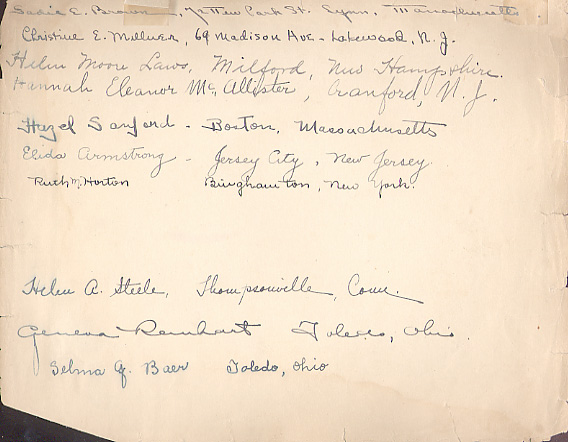 Sadie E. Brown, 72 New Park St. Lynn, Massachusetts
Christine E. Millner, 69 Madison Ave - Lakewood, N. J.
Helen Moore Laws, Milford, New Hampshire.
Hannah Eleanor McAllister, Cranford, N. J.
Hazel Sanford - Boston, Massachusetts
Elida Armstrong - Jersey City, New Jersey.
Ruth M. Horton Binghamton, New York.
Helen A. Steele, Thompsonville, Conn.
Geneva Reinhart Toledo, Ohio.
Selma G. Baer Toledo, Ohio